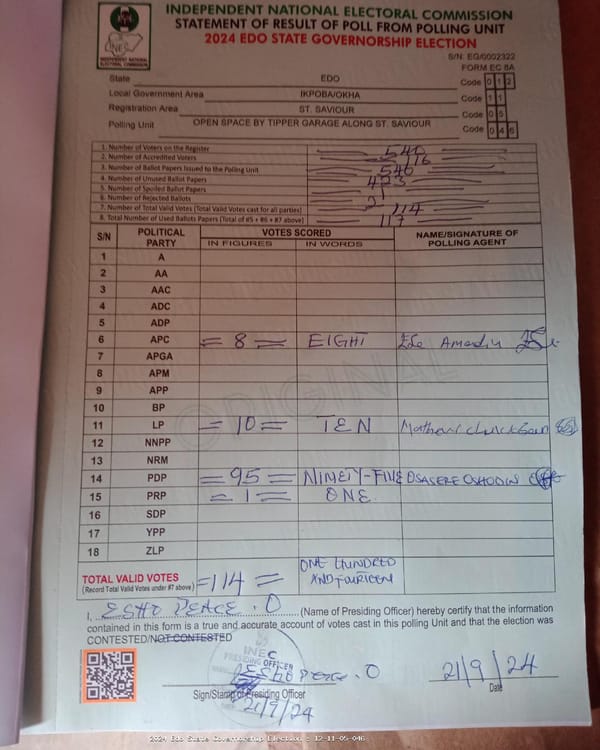 INDEPENDENT NATIONAL ELECTORAL COMMISSION
STATEMENT OF RESULT OF POLL FROM POLLING UNIT
2024 EDO STATE GOVERNORSHIP ELECTION
INEC
INDEPENDENT NATIONAL ELECTORAL COMMISSION
S/N: EG/0002322
FORM EC 8A
State EDO Code 0 1 2
Local Government Area IKPOBA/OKHA Code 1 1
Registration Area ST. SAVIOUR Code 0 5
Polling Unit OPEN SPACE BY TIPPER GARAGE ALONG ST. SAVIOUR Code 0 4 6
1. Number of Voters on the Register 540
2. Number of Accredited Voters 116
3. Number of Ballot Papers Issued to the Polling Unit 540
4. Number of Unused Ballot Papers 423
5. Number of Spoiled Ballot Papers 1
6. Number of Rejected Ballots 2
7. Number of Total Valid Votes (Total Valid Votes cast for all parties) 114
8. Total Number of Used Ballots Papers (Total of #5 + #6 + #7 above) 117
S/N POLITICAL PARTY VOTES SCORED NAME/SIGNATURE OF POLLING AGENT
IN FIGURES IN WORDS
1 A
2 AA
3 AAC
4 ADC
5 ADP
6 APC = 8 = EIGHT Amadin
7 APGA
8 APM
9 APP
10 BP
11 LP = 10 = TEN
12 NNPP
13 NRM
14 PDP = 95 = NINETY-FINE OSASERE OSHODIN
15 PRP = 1 = ONE
16 SDP
17 YPP
18 ZLP
ORIGINAL
TOTAL VALID VOTES =114= ONE HUNDRED AND FOURTEEN
(Record Total Valid Votes under #7 above)
I, ESHO PEACE . O (Name of Presiding Officer) hereby certify that the information
contained in this form is a true and accurate account of votes cast in this polling Unit and that the election was
CONTESTED/NOT CONTESTED
INEC
PRESIDING OFFICER
ESHO PEACE . O 21/9/24
Sign/Stamp of Presiding Officer Date
21/9/24
2024 Edo State Governorship Election : 12-11-05-046